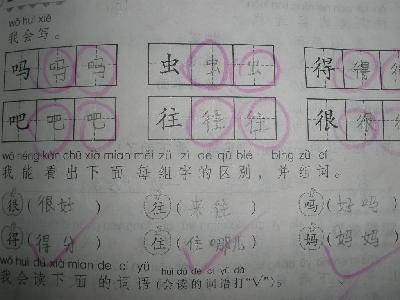 wǒ huì xiě
我会写。
吗 吗 吗 虫 虫 虫 得 得
吧 吧 吧 往 往 往 很 很
wǒ néng kàn chū xià mian měi zǔ zì de qū bié bìng zǔ cí
我能看出下面每组字的区别，并组词。
很（很好） 往（来往） 吗（好吗）
得（得分） 住（住哪儿） 妈（妈妈）
wǒ huì dú xià mian de cí yǔ huì dú de cí yǔ dǎ
我会读下面的词语（会读的词语打“√”）。